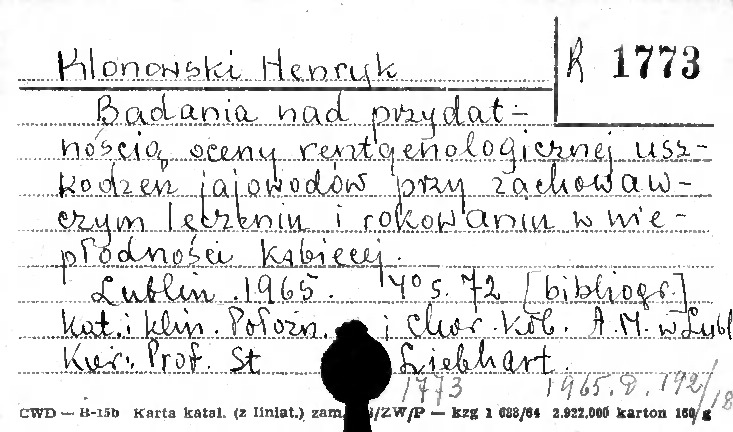 Klonowski Henryk
R 1773
Badania nad przydat-
nością oceny rentgenologicznej usz-
kodzeń jajowodów przy zachowaw-
czym leczeniu i rokowaniu w nie-
płodności kobiecej.
Lublin. 1965. 4° s. 72 [bibliogr.]
Kat. i Klin. Położn. i Chor. Kob. A.M. w Lubl
Kier: Prof. St Liebhart.
1773 1965.D.192/18
CWD — B-15b Karta katal. (z liniat.) zam. /ZW/P — kzg 1 688/64 2.922.000 karton 160 g